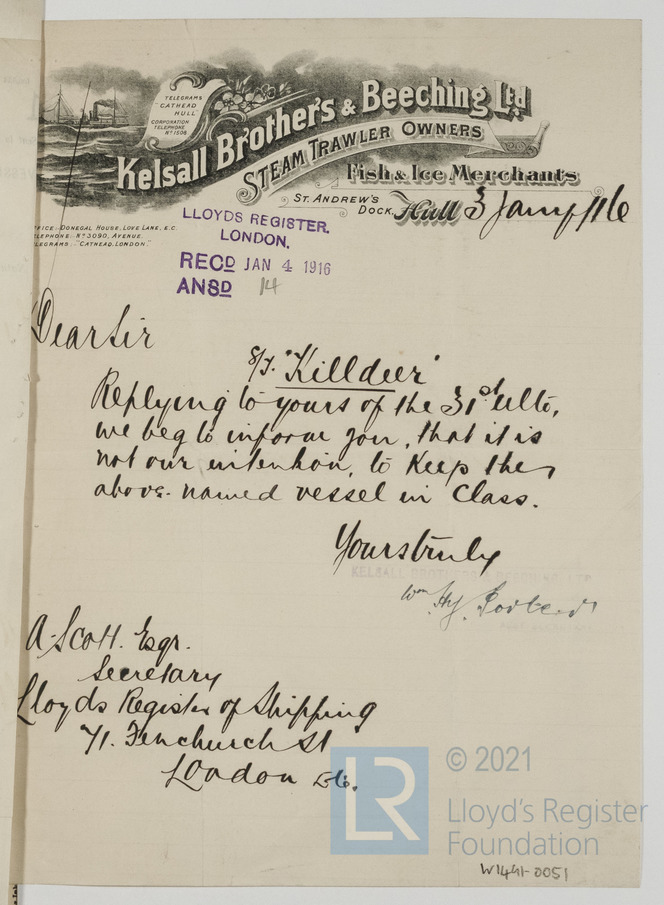 TELEGRAMS
"CATHEAD
HULL"
CORPORATION
TELEPHONE
Nº 1508
Kelsall Brothers & Beeching Ltd
STEAM TRAWLER OWNERS
Fish & Ice Merchants
ST. ANDREW'S
DOCK, Hull 3 Jany 1916
OFFICE: DONEGAL HOUSE, LOVE LANE, E.C.
TELEPHONE: Nº 3090, AVENUE.
TELEGRAMS: "CATHEAD, LONDON."
LLOYDS REGISTER.
LONDON.
RECD JAN 4 1916
ANSD 14
Dear Sir
S/T. "Killdeer"
Replying to yours of the 31st ulto,
we beg to inform you, that it is
not our intention, to keep the
above-named vessel in Class.
Yours truly
KELSALL BROTHERS & BEECHING LTD
Wm Hy.
A. Scott. Esqr.
Secretary
Lloyds Register of Shipping
71. Fenchurch St
London E.C.
LR
© 2021
Lloyd's Register
Foundation
W1491-0051